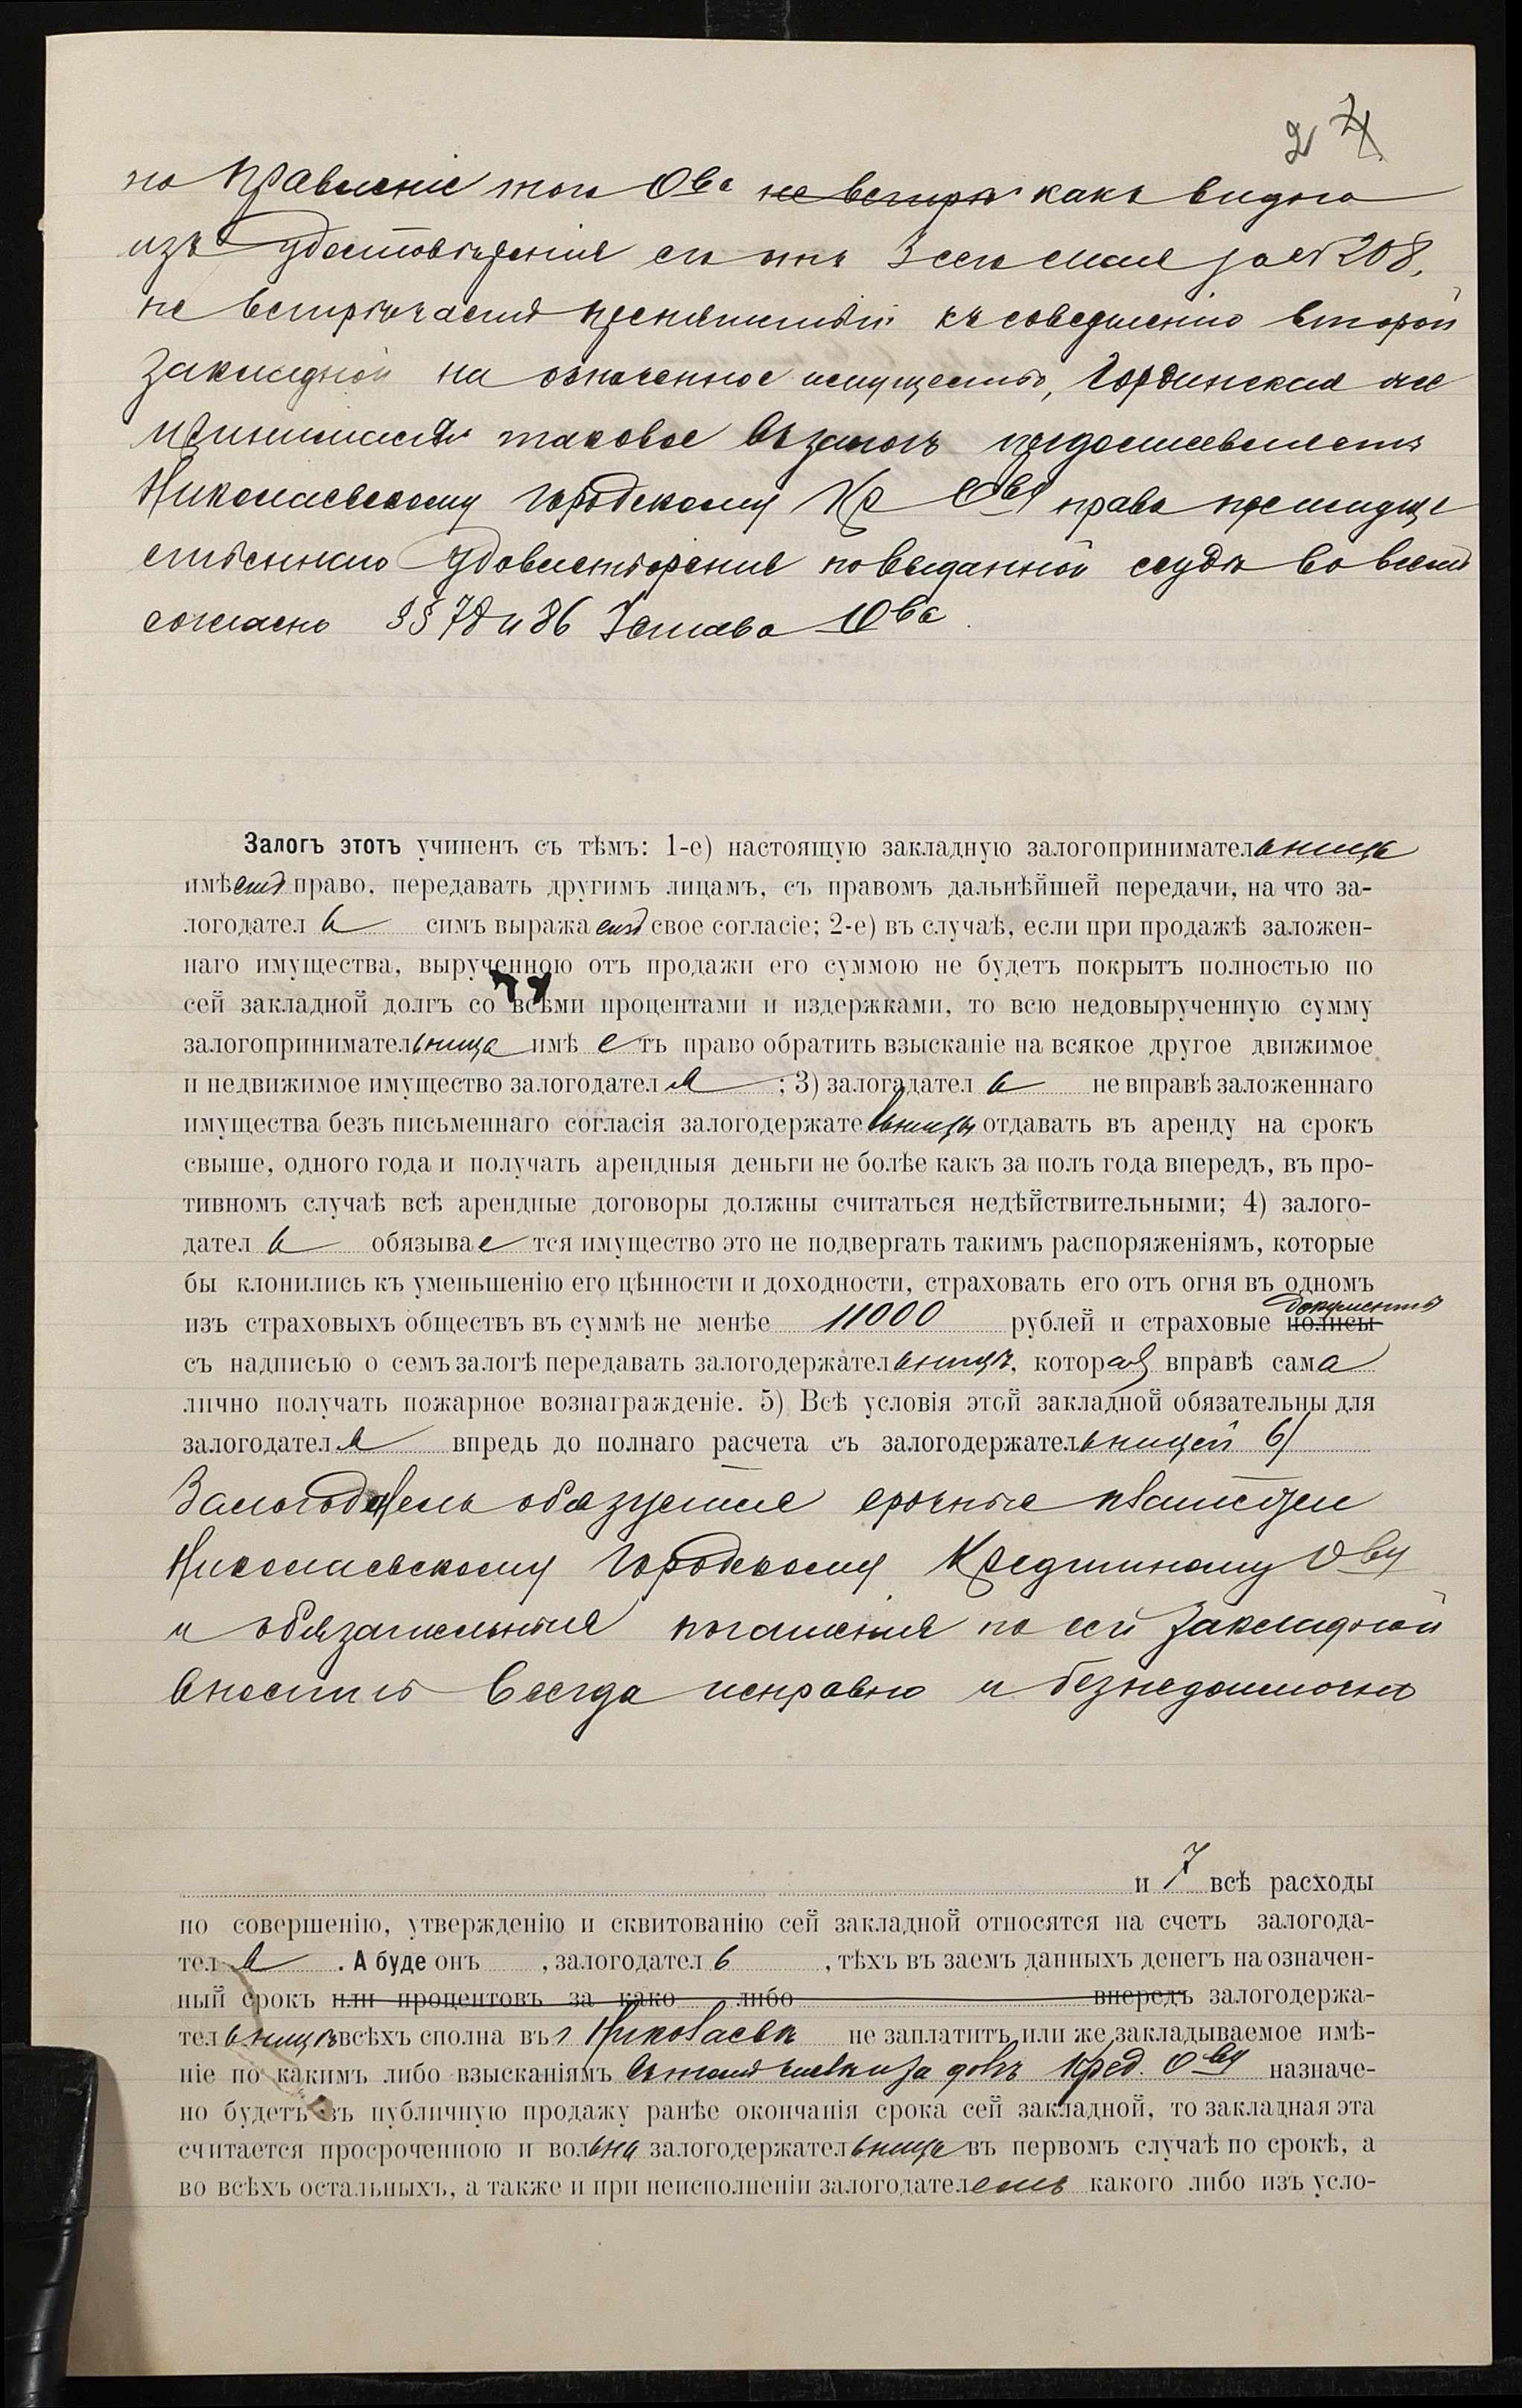 2 4
но Правленіе того Ова не встрѣ какъ видно
изъ удостовѣренія его отъ 3 сего мая за № 208,
не встрѣчаетъ препятствій къ совершенію второй
закладной на означенное имущество, Гординская же
принимая таковое въ залогъ предоставляетъ
Николаевскому Городскому Кр Ову право преимуще
ственнаго удовлетворенія по выданной ссудѣ во всемъ
согласно §§ 78 и 86 Устава Ова.
Залогъ этотъ учиненъ съ тѣмъ: 1-е) настоящую закладную залогопринимательница
имѣетъ право, передавать другимъ лицамъ, съ правомъ дальнѣйшей передачи, на что за-
логодатель симъ выражаетъ свое согласіе; 2-е) въ случаѣ, если при продажѣ заложен-
наго имущества, вырученною отъ продажи его суммою не будетъ покрытъ полностью по
сей закладной долгъ со всѣми процентами и издержками, то всю недовырученную сумму
залогопринимательница имѣетъ право обратить взысканіе на всякое другое движимое
и недвижимое имущество залогодателя; 3) залогадатель не вправѣ заложеннаго
имущества безъ письменнаго согласія залогодержательницы отдавать въ аренду на срокъ
свыше, одного года и получать арендныя деньги не болѣе какъ за полъ года впередъ, въ про-
тивномъ случаѣ всѣ арендные договоры должны считаться недѣйствительными; 4) залого-
датель обязывается имущество это не подвергать такимъ распоряженіямъ, которые
бы клонились къ уменьшенію его цѣнности и доходности, страховать его отъ огня въ одномъ
изъ страховыхъ обществъ въ суммѣ не менѣе 11000 рублей и страховые полисы документы
съ надписью о семъ залогѣ передавать залогодержательницѣ, которая вправѣ сама
лично получать пожарное вознагражденіе. 5) Всѣ условія этой закладной обязательны для
залогодателя впредь до полнаго расчета съ залогодержательницей 6)
Залогодатель обязуется срочные платежи
Николаевскому Городскому Кредитному Ову
и обязательныя погашенія по сей закладной
вносить всегда исправно и безнедоимочно
и 7 всѣ расходы
по совершенію, утвержденію и сквитованію сей закладной относятся на счетъ залогода-
теля. А буде онъ, залогодатель, тѣхъ въ заемъ данныхъ денегъ на означен-
ный срокъ или процентовъ за како либо впередъ залогодержа-
тельницѣ всѣхъ сполна въ г Николаевѣ не заплатитъ, или же закладываемое имѣ-
ніе по какимъ либо взысканіямъ въ томъ числѣ и за долгъ Кред. Ову назначе-
но будетъ въ публичную продажу ранѣе окончанія срока сей закладной, то закладная эта
считается просроченною и вольна залогодержательница въ первомъ случаѣ по срокѣ, а
во всѣхъ остальныхъ, а также и при неисполненіи залогодателемъ какого либо изъ усло-